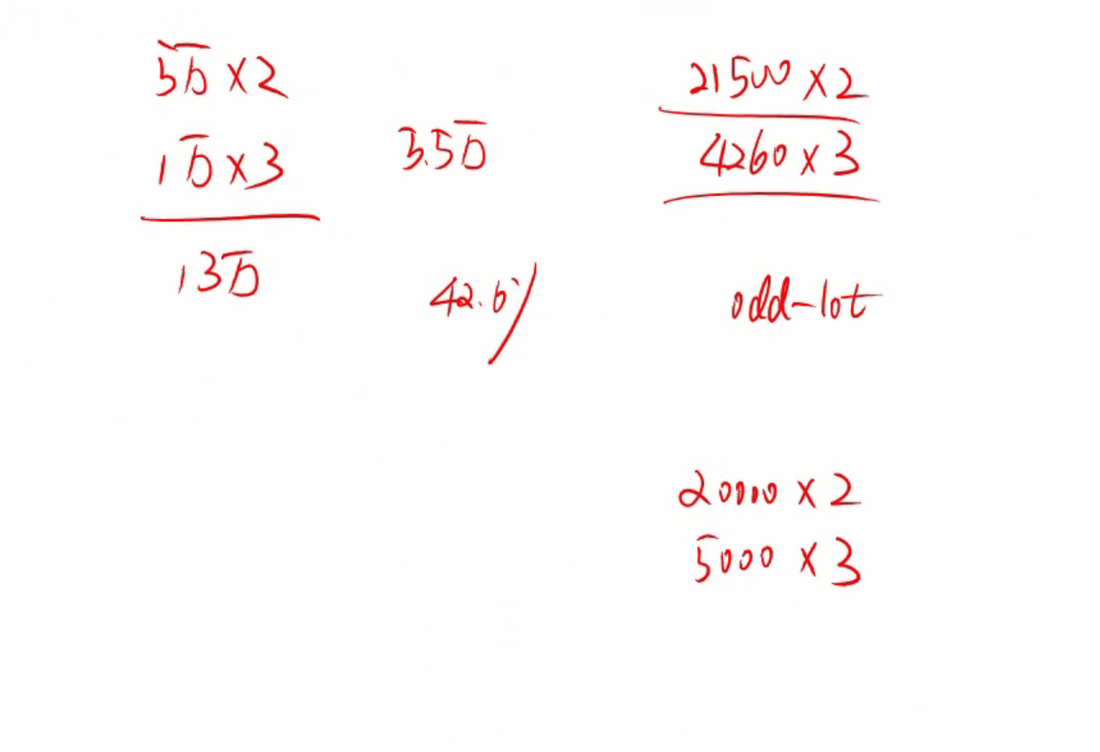 5万×2
1万×3
13万
3.5万
42.6%
21500×2
4260×3
odd-lot
20000×2
5000×3